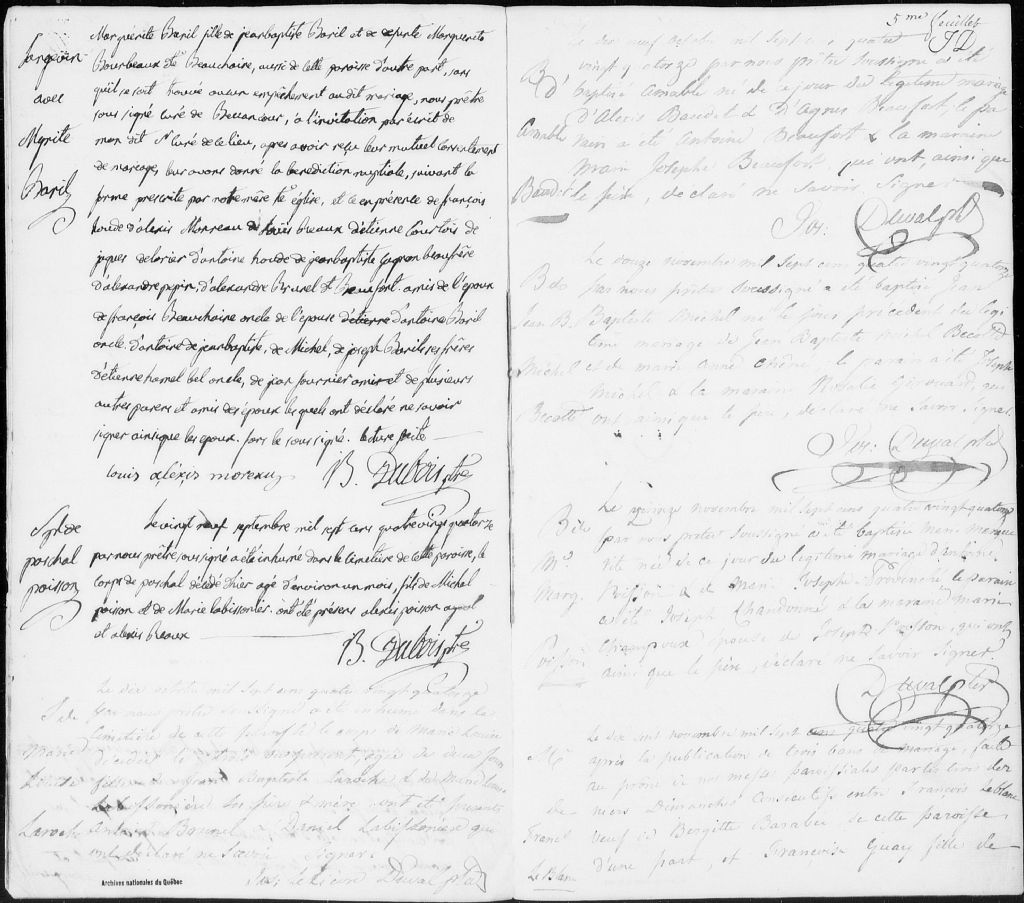 Marguerite Baril fille de jean baptiste Baril et de defunte Marguerite
Bourbeaux dt Beauchaine, aussi de cette paroisse d'autre part, sans
qu'il se soit trouvé aucun empêchement au dit mariage, nous prêtre
sous signé curé de Becancour, à l'invitation par écrit de
mon dit Sr Curé de ce lieu, apres avoir reçu leur mutuel consentement
de mariage, leur avons donné la benediction nuptiale, suivant la
forme prescrite par notre mère Ste église, et ce en présence de françois
houde d'alexis Moreau de louis Beaux d'étienne Courtois de
jaques delorier d'antoine houde de jean baptiste Gagnon beaufrère
d'alexandre pepin, d'alexandre Brunel dt Beaufort amis de l'époux
de françois Beauchaine oncle de l'epouse d'étienne d'antoine Baril
oncle d'antoine de jean baptiste, de Michel, de joseph Barils ses frères
d'étienne hamel bel oncle, de jean fournier ami et de plusieurs
autres parens et amis des époux lesquels ont déclaré ne savoir
signer ainsi que les epoux. fors le sous signé. lecture faite
louis aléxis moreau B. Dubois ptre
avec
Mgrite
Baril
Le vingt neuf septembre mil sept cens quatrevingt quatorze
par nous prêtre sous signé a été inhumé dans le cimetière de cette paroisse, le
corps de paschal décédé d'hier agé d'environ un mois, fils de Michel
poisson et de Marie labissonier. ont été présens alexis poisson ayeul
et alexis Beaux
B. Dubois ptre
S. de
paschal
poisson
Le dix octobre mil sept cens quatre vingt quatorze
par nous prêtre soussigné a été inhumé dans le
cimetière de cette paroisse le corps de Marie Louise
Baptiste Laroche & de
ses père & mère ont été présents
Antoine Brunel & Daniel Labissoniere qui
ont déclaré ne savoir signer.
Duval Ptre
S. de
Marie
Louise
Laroche
Archives nationales du Québec
5me feuillet
JD
Le dix neuf octobre mil sept cens quatre
vingt quatorze par nous prêtre soussigné a été
baptisé Amable né de ce jour du légitime mariage
d'Alexis Baudet & D'Agnes Beaufort, le pa
rain a été Antoine Beaufort & la maraine
Marie Josephe Beaufort, qui ont, ainsi que
le père, déclaré ne savoir signer
Jos: Duval ptre
B. d'
Amable
Baudet
Le douze novembre mil sept cens quatre vingt quatorze
par nous prêtre soussigné a été baptisé Jean
Baptiste Michel né le jour précédent du légi
time mariage de Jean Baptiste Michel Becotte
et de Marie Anne Chêne. le parain a été Joseph
Michel & la maraine Natalie Girouard, qui
ont ainsi que le père, déclaré ne savoir signer.
Jos: Duval Ptre
B. de
Jean B.
Michel
Becotte
Le quinze novembre mil sept cens quatre vingt quatorze
par nous prêtre soussigné a été baptisée Marie Margue
rite née de ce jour du légitime mariage d'Antoine
Poisson & de Marie Josephe Provenché, le parain
a été Joseph Chandonné & la maraine Marie
Champoux épouse de Joseph Poisson, qui ont
ainsi que le père, déclaré ne savoir signer.
Duval Ptre
B. de
M.
Marg.
Poisson
Le dix sept novembre mil sept cens quatre vingt quatorze
après la publication de trois bans de mariage, faite
au prône de nos messes paroissiales par trois der
niers Dimanches Consécutifs entre François Leblanc
veuf de Brigitte Barabé, de cette paroisse
d'une part, et Francoise Guay fille de
M.
de
Francs
Le Blanc